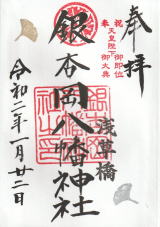 奉拝
祝 天皇陛下御即位
奉 御大典
浅草橋
銀杏岡八幡神社
令和二年一月廿二日